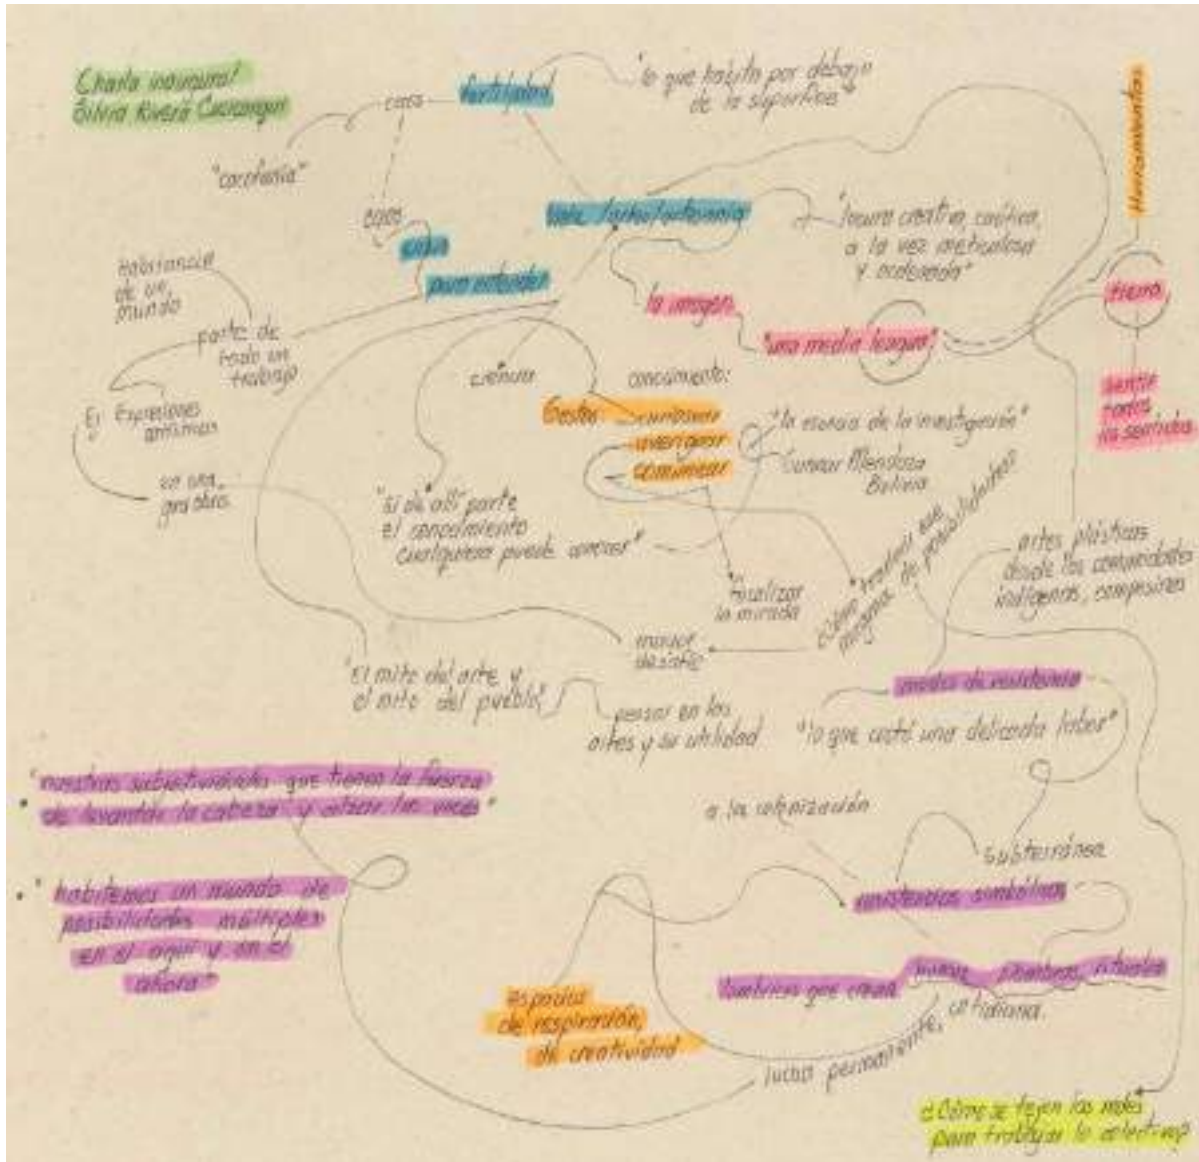 Charla inaugural
Silvia Rivera Cusicanqui
caos
fertilidad
"lo que habita por debajo
de la superficie"
"cacofonía"
caos
para entender
"locura creativa, caótica,
a la vez meticulosa
y ordenada"
Herramientas
tierra
sentir
todos
los sentidos
la imagen
"una media lengua"
habitancia
de un
mundo
parte de
todo un
trabajo
Expresiones
anónimas
en una
gran obra
ciencia
conocimiento:
Gestos:
curiosear
averiguar
comunicar
"la esencia de la investigación"
Gunnar Mendoza
Bolivia
"si de allí parte
el conocimiento
cualquiera puede conocer"
focalizar
la mirada
mayor
desafío
artes plásticas
desde las comunidades
indígenas, campesinas
"El mito del arte y
el mito del pueblo"
pensar en las
artes y su utilidad
modos de resistencia
"lo que costó una delicada labor"
"nuestras subjetividades que tienen la fuerza
de levantar la cabeza y alzar las voces"
"habitemos un mundo de
posibilidades múltiples
en el aquí y en el
ahora"
a la colonización
subterránea
simbólicas
lumbrices que crean
rituales
espacios
de respiración,
de creatividad
lucha permanente, cotidiana.
¿Cómo se tejen las redes
para trabajar lo colectivo?